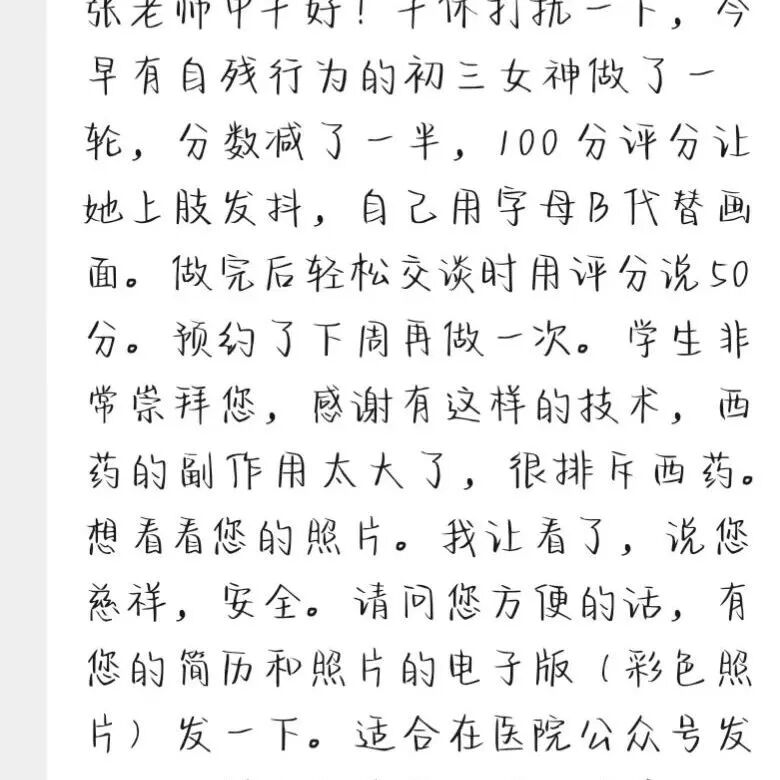 张老师中午好！午休打扰一下，今
早有自残行为的初三女神做了一
轮，分数减了一半，100分评分让
她上肢发抖，自己用字母B代替画
面。做完后轻松交谈时用评分说50
分。预约了下周再做一次。学生非
常崇拜您，感谢有这样的技术，西
药的副作用太大了，很排斥西药。
想看看您的照片。我让看了，说您
慈祥，安全。请问您方便的话，有
您的简历和照片的电子版（彩色照
片）发一下。适合在医院公众号发